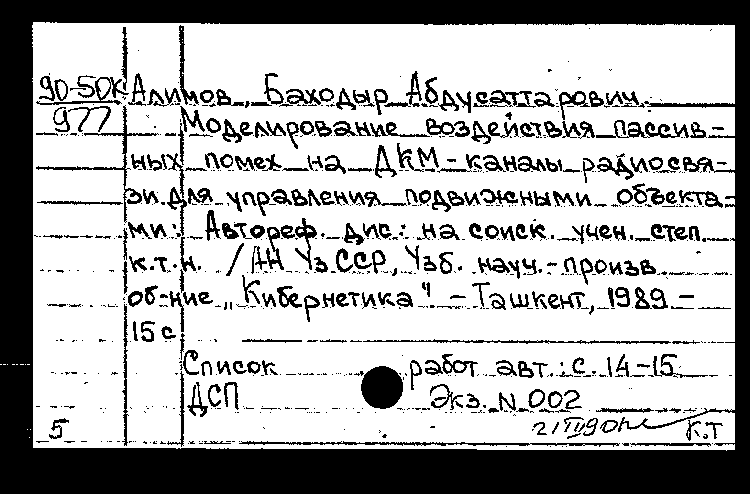 90-50К Алимов, Баходыр Абдусаттарович.
977 Моделирование воздействия пассив-
ных помех на ДКМ-каналы радиосвя-
зи для управления подвижными объекта-
ми: Автореф. дис.: на соиск. учен. степ.
к.т.н. /АН УзССР, Узб. науч.-произв.
об-ние „Кибернетика" - Ташкент, 1989.-
15 с
Список работ авт.: с. 14-15
ДСП Экз. N 002
5 К.Т